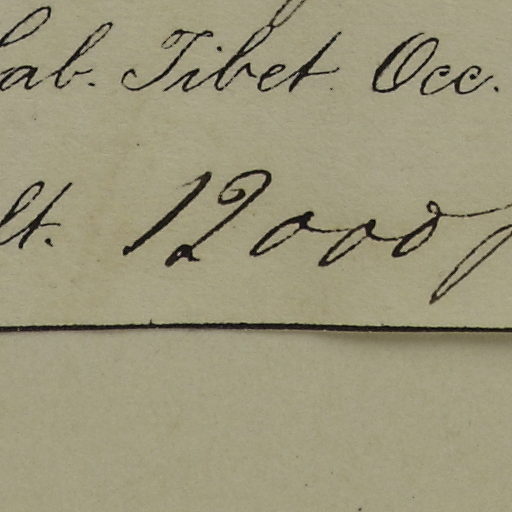 Hab. Tibet Occ.
lt. 12000